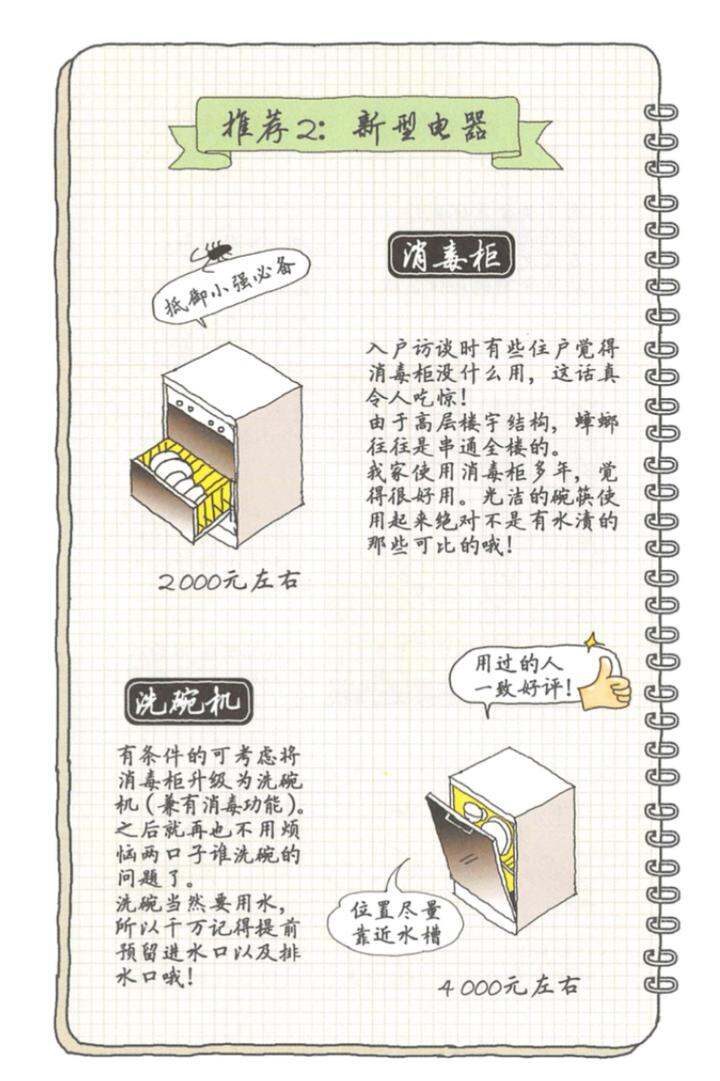 推荐2：新型电器
抵御小强必备
消毒柜
入户访谈时有些住户觉得
消毒柜没什么用，这话真
令人吃惊！
由于高层楼宇结构，蟑螂
往往是串通全楼的。
我家使用消毒柜多年，觉
得很好用。光洁的碗筷使
用起来绝对不是有水渍的
那些可比的哦！
2000元左右
洗碗机
有条件的可考虑将
消毒柜升级为洗碗
机（兼有消毒功能）。
之后就再也不用烦
恼两口子谁洗碗的
问题了。
洗碗当然要用水，
所以千万记得提前
预留进水口以及排
水口哦！
用过的人
一致好评！
位置尽量
靠近水槽
4000元左右